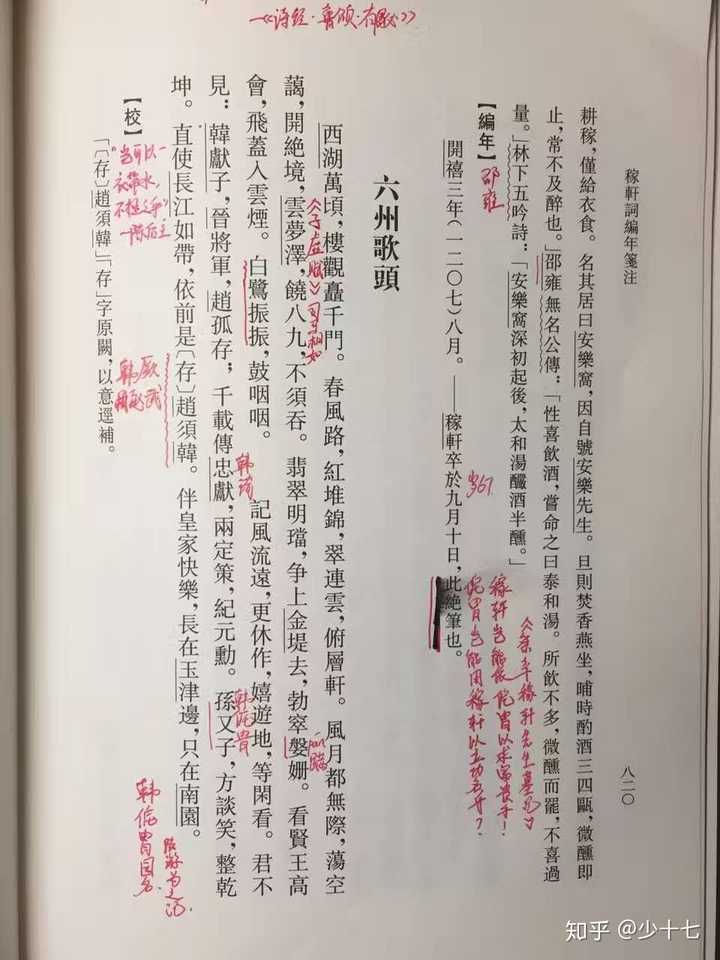 《诗经·鲁颂·有駜》
稼軒詞編年箋注
八二〇
耕稼，僅給衣食。名其居曰安樂窩，因自號安樂先生。旦則焚香燕坐，晡時酌酒三四甌，微醺即
止，常不及醉也。」邵雍無名公傳：「性喜飲酒，嘗命之曰泰和湯。所飲不多，微醺而罷，不喜過
量。」林下五吟詩：「安樂窩深初起後，太和湯釅酒半醺。」
邵雍
【編年】
開禧三年（一二〇七）八月。——稼軒卒於九月十日，此絶筆也。
岁67
《祭辛稼轩先生墓记》
稼轩岂能依侂胄以求富贵者！
侂胄岂能用稼轩以立功名者？
六州歌頭
西湖萬頃，樓觀矗千門。春風路，紅堆錦，翠連雲，俯層軒。風月都無際，蕩空
藹，開絶境，雲夢澤，饒八九，不須吞。翡翠明璫，争上金堤去，勃窣媻姍。看賢王高
會，飛蓋入雲煙。白鷺振振，鼓咽咽。　記風流遠，更休作，嬉遊地，等閑看。君不
見：韓獻子，晉將軍，趙孤存；千載傳忠獻，兩定策，紀元勳。孫又子，方談笑，整乾
坤。直使長江如帶，依前是〔存〕趙須韓。伴皇家快樂，長在玉津邊，只在南園。
《子虚赋》司马相如
韩琦
韩侂胄园名
陆游为之记
韩厥
岂可以一
衣带水，
不拯之乎
—陈后主
【校】
「〔存〕趙須韓」「存」字原闕，以意逕補。
知乎 @少十七